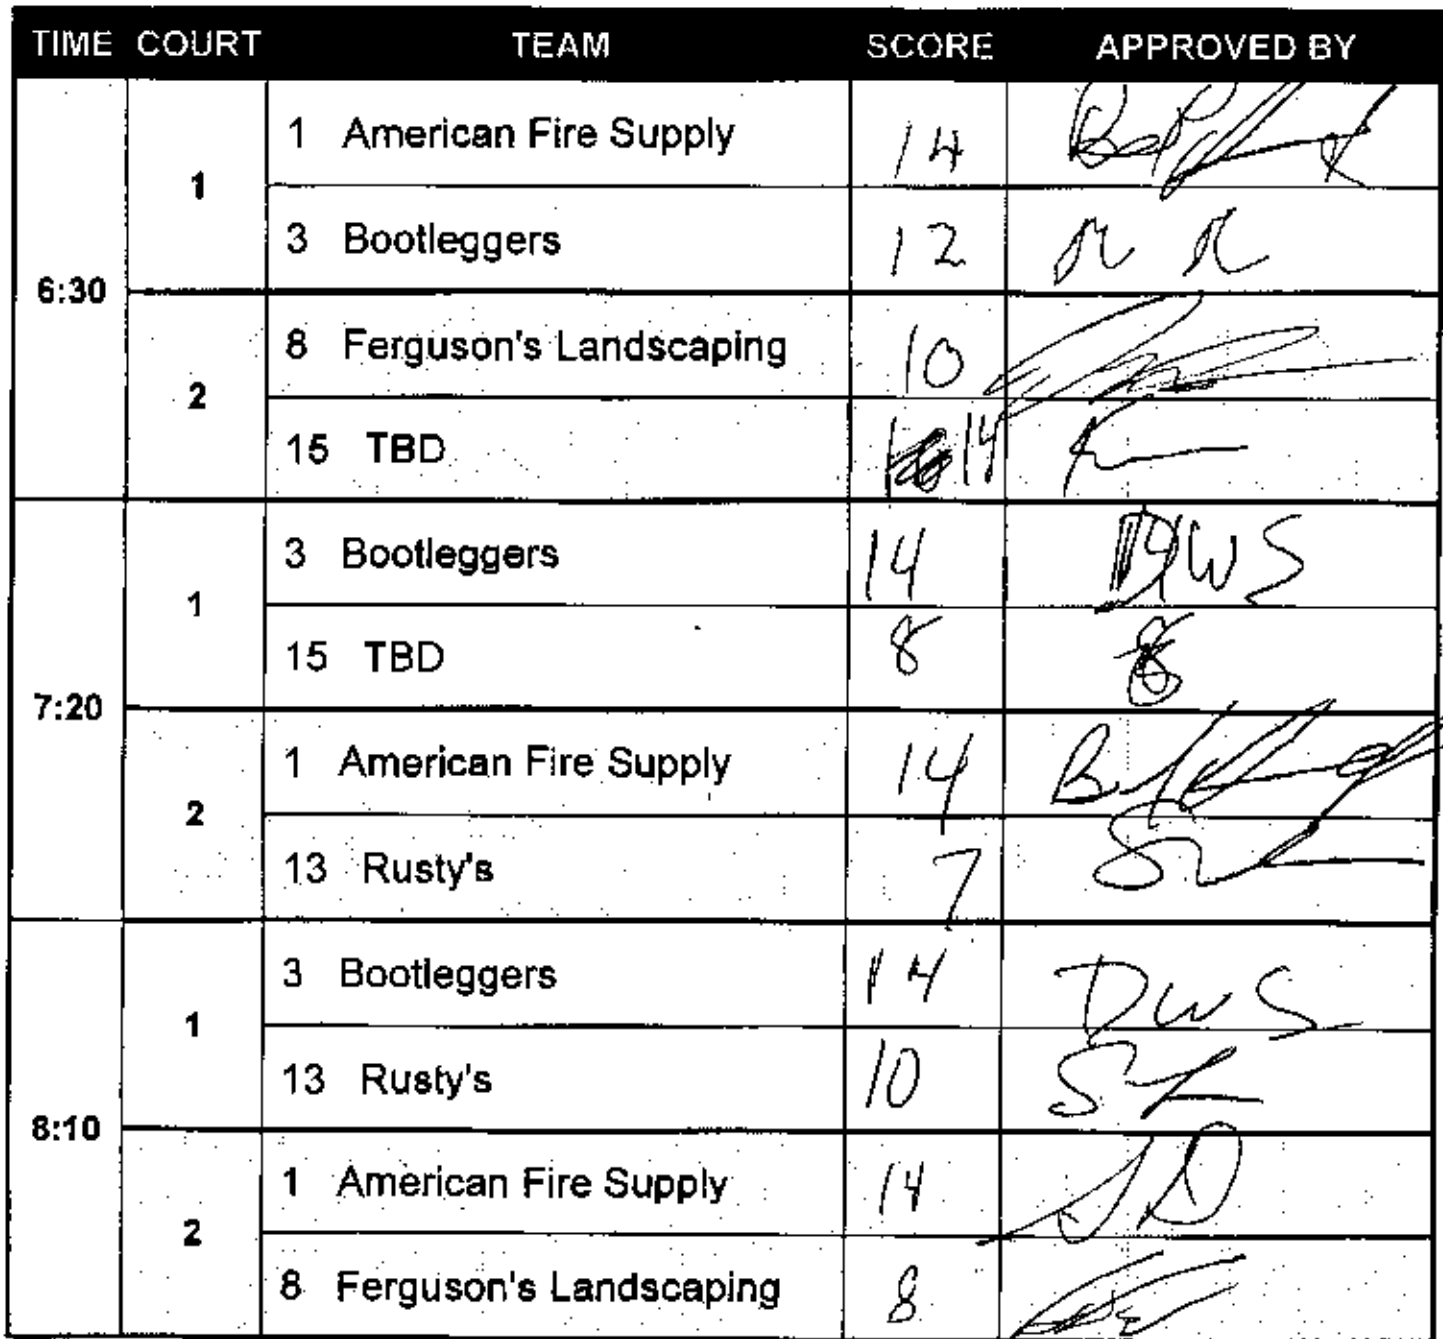 TIME COURT TEAM SCORE APPROVED BY
6:30
1
1 American Fire Supply 14
3 Bootleggers 12
2
8 Ferguson's Landscaping 10
15 TBD 14
7:20
1
3 Bootleggers 14 DWS
15 TBD 8
2
1 American Fire Supply 14
13 Rusty's 7
8:10
1
3 Bootleggers 14 DWS
13 Rusty's 10
2
1 American Fire Supply 14
8 Ferguson's Landscaping 8